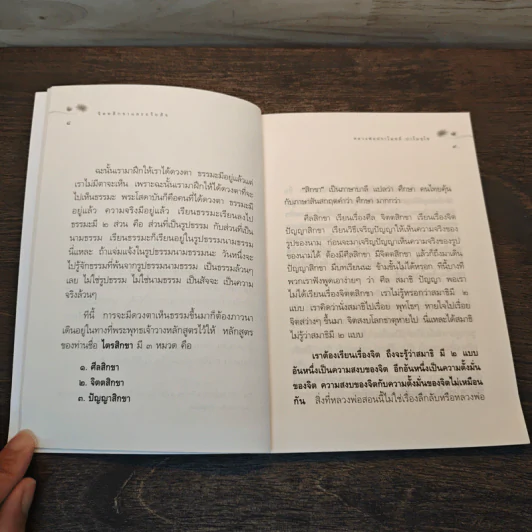 ฉะนั้นเรามาฝึกให้เราได้ดวงตา ธรรมะมีอยู่แล้วแต่
เราไม่มีตาจะเห็น เพราะฉะนั้นเรามาฝึกให้ได้ดวงตาที่จะ
ไปเห็นธรรมะ พระโสดาบันก็คือคนที่ได้ดวงตา ธรรมะมี
อยู่แล้ว ความจริงมีอยู่แล้ว เรียนธรรมะเรียนลงไป
ธรรมะมี ๒ ส่วน คือ ส่วนที่เป็นรูปธรรม กับส่วนที่เป็น
นามธรรม เรียนธรรมะก็เรียนอยู่ในรูปธรรมนามธรรม
นี่แหละ ถ้าแจ่มแจ้งในรูปธรรมนามธรรมนะ วันหนึ่งจะ
ไปรู้จักธรรมที่พ้นจากรูปธรรมนามธรรม เป็นธรรมล้วนๆ
เลย ไม่ใช่รูปธรรม ไม่ใช่นามธรรม เป็นสัจจะ เป็นความ
จริงล้วนๆ
ทีนี้ การจะมีดวงตาเห็นธรรมขึ้นมาก็ต้องภาวนา
เดินอยู่ในทางที่พระพุทธเจ้าวางหลักสูตรไว้ให้ หลักสูตร
ของท่านชื่อ ไตรสิกขา มี ๓ หมวด คือ
๑. ศีลสิกขา
๒. จิตตสิกขา
๓. ปัญญาสิกขา
“สิกขา” เป็นภาษาบาลี แปลว่า ศึกษา คนไทยคุ้น
กับภาษาสันสกฤตคำว่า ศึกษา มากกว่า
ศีลสิกขา เรียนเรื่องศีล จิตตสิกขา เรียนเรื่องจิต
ปัญญาสิกขา เรียนวิธีเจริญปัญญาให้เห็นความจริงของ
รูปของนาม ก่อนจะมาเจริญปัญญาเห็นความจริงของรูป
ของนามได้ ต้องมีศีลสิกขา มีจิตตสิกขา แล้วก็ถึงมาเดิน
ปัญญาสิกขา มีบทเรียนนะ ข้ามขั้นไม่ได้หรอก ทีนี้บางที
พวกเราฟังพูดเอาง่ายๆ ว่า ศีล สมาธิ ปัญญา พอเรา
ไม่ได้เรียนเรื่องจิตตสิกขา เราไม่รู้หรอกว่าสมาธิมี ๒
แบบ เราคิดว่านั่งสมาธิไปเรื่อย พุทโธๆ หายใจไปเรื่อยๆ
จิตสว่างๆ ขึ้นมา จิตสงบโลกธาตุหายไป นี่แหละได้สมาธิ
ไม่รู้ว่าสมาธิมี ๒ แบบ
เราต้องเรียนเรื่องจิต ถึงจะรู้ว่าสมาธิ มี ๒ แบบ
อันหนึ่งเป็นความสงบของจิต อีกอันหนึ่งเป็นความตั้งมั่น
ของจิต ความสงบของจิตกับความตั้งมั่นของจิตไม่เหมือน
กัน สิ่งที่หลวงพ่อสอนนี้ไม่ใช่เรื่องลึกลับหรือหลวงพ่อ